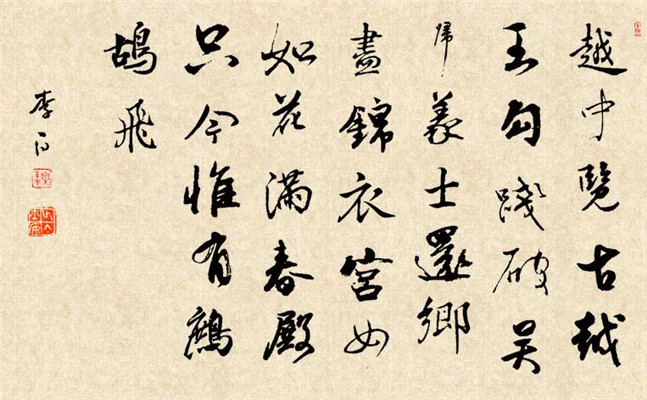 越中覽古越
王勾踐破吳
歸義士還鄉
盡錦衣宮女
如花滿春殿
只今惟有鷓
鴣飛
李白